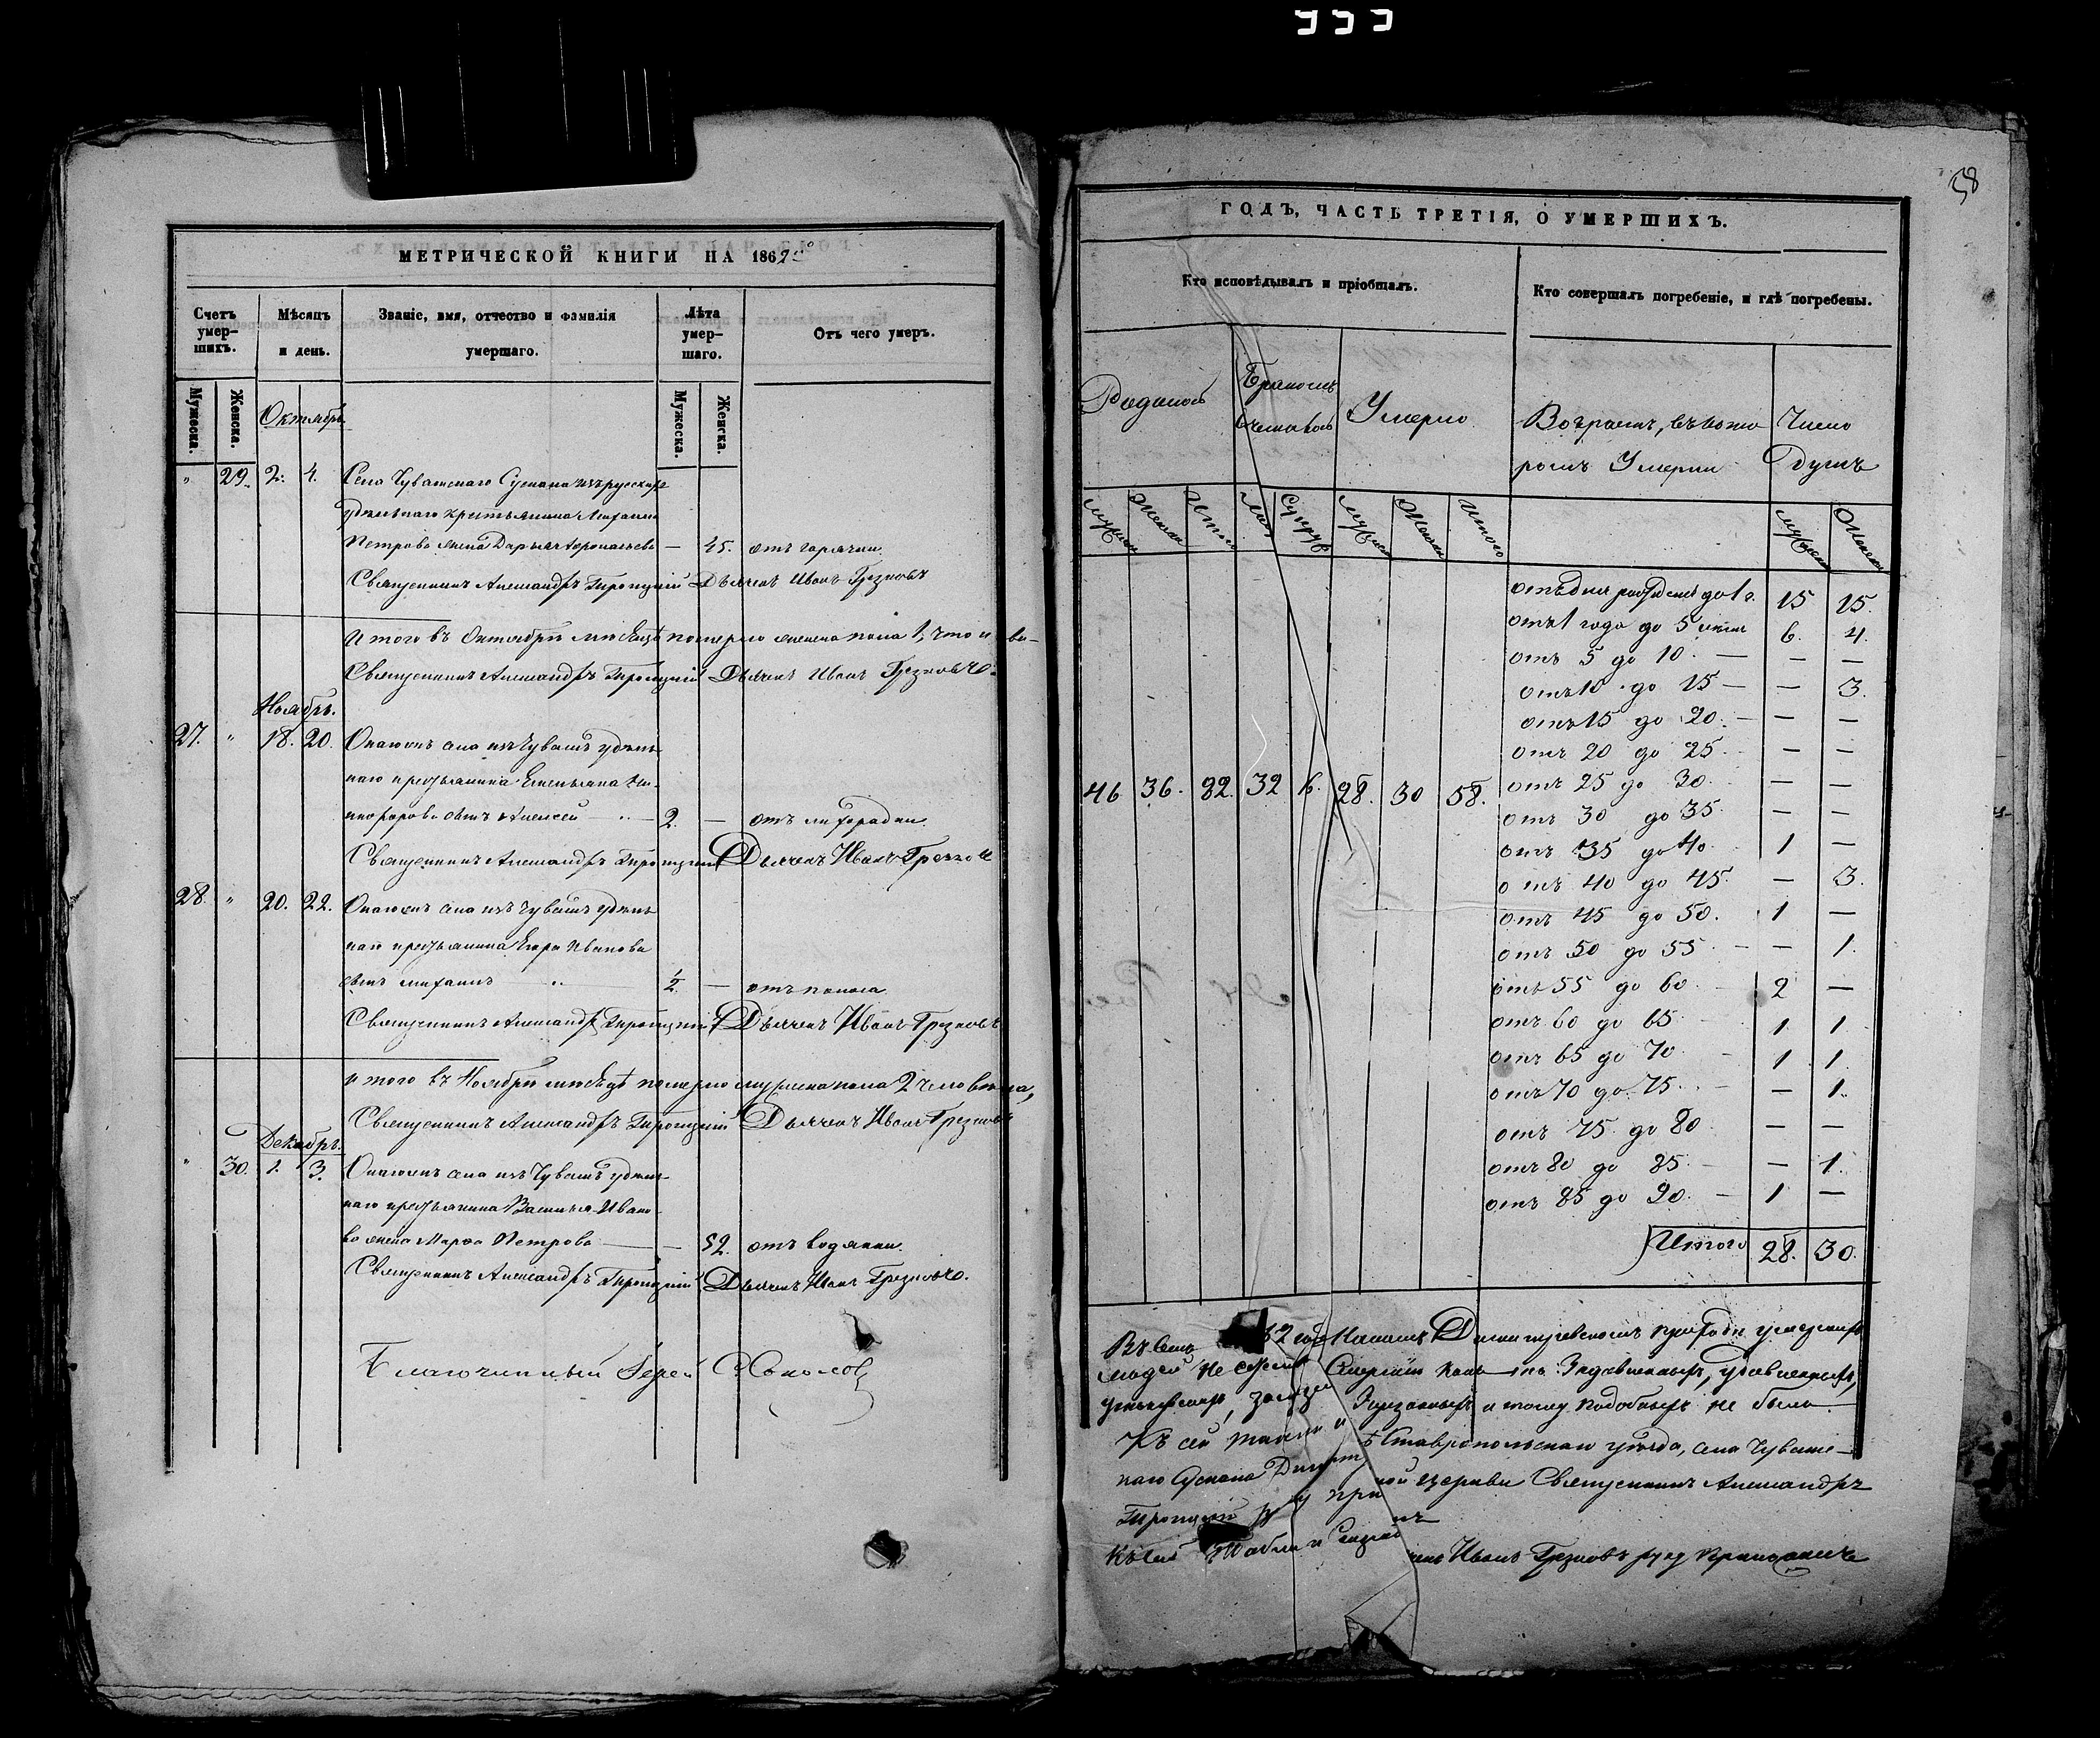 555
58
МЕТРИЧЕСКОЙ КНИГИ НА 1862
Счетъ умер-шихъ.
Мѣсяцъ и день.
Званіе, имя, отчество и фамилія умершаго.
Лѣта умер-шаго.
Отъ чего умеръ.
Мужеска.
Женска.
Мужеска.
Женска.
Октябрь
" 29. 2. 4. Села Чувашскаго Сускана изъ русскихъ
удѣльнаго крестьянина Михаила
Петрова жена Дарья — 45. отъ горячки.
Священникъ Александръ Дьячекъ Иванъ Грезновъ
Итого въ Октябрѣ мѣсяцѣ померло женска пола 1, что и
Священникъ Александръ Дьячекъ Иванъ Грезновъ
Ноябрь.
27. " 18. 20. Онагожъ села изъ Чувашъ удѣль-
наго крестьянина Емельяна Ни-
кифорова сынъ Алексей 2. — отъ лихорадки.
Священникъ Александръ Дьячекъ Иванъ Грезновъ
28. " 20. 22. Онагожъ села изъ Чувашъ удѣль-
наго крестьянина Егора Иванова
сынъ Михаилъ " 1/2 — отъ поноса
Священникъ Александръ Дьячекъ Иванъ Грезновъ
итого въ Ноябрѣ мѣсяцѣ померло мужеска пола 2 человѣка,
Священникъ Александръ Дьячекъ Иванъ Грезновъ
Декабрь.
" 30. 1. 3. Онагожъ села изъ Чувашъ удѣль-
наго крестьянина Василья Ивано-
ва жена Марѳа Петрова — 52. отъ водянки.
Священникъ Александръ Дьячекъ Иванъ Грезновъ.
Благочинный Іерей Соколовъ
ГОДЪ, ЧАСТЬ ТРЕТІЯ, О УМЕРШИХЪ.
Кто исповѣдывалъ и пріобщалъ.
Кто совершалъ погребеніе, и гдѣ погребены.
Родилось
Бракомъ
Умерло
Возрастъ, въ кото-
ромъ Умерли
Число
Душъ
Мужска Женска Итого Супруж Мужска Женска Итого
Мужска Женска
46 36. 82. 32 6. 28. 30 58.
отъ дня рожденія до 1 г. 15 15.
отъ 1 года до 5 лѣтъ 6. 4.
отъ 5 до 10. — — —
отъ 10 до 15 — — 3.
отъ 15 до 20. — — —
отъ 20 до 25. — —
отъ 25 до 30. — —
отъ 30 до 35. — —
отъ 35 до 40. 1 —
отъ 40 до 45. — 3.
отъ 45 до 50. 1 —
отъ 50 до 55 — — 1.
отъ 55 до 60. 2 —
отъ 60 до 65. 1 1.
отъ 65 до 70. 1 1.
отъ 70 до 75. — 1.
отъ 75 до 80 — —
отъ 80 до 85. — 1.
отъ 85 до 90. — 1 —
Итого 28. 30.
Въ семъ 62 году приходѣ умершихъ
людей не своею смертію какъ то: Задавленныхъ, удавленныхъ,
и тому подобныхъ не было.
Къ сей Ставропольскаго уѣзда, села Чуваш-
скаго Сускана церкви Священникъ Александръ
Къ сей Иванъ Грезновъ руку приложилъ